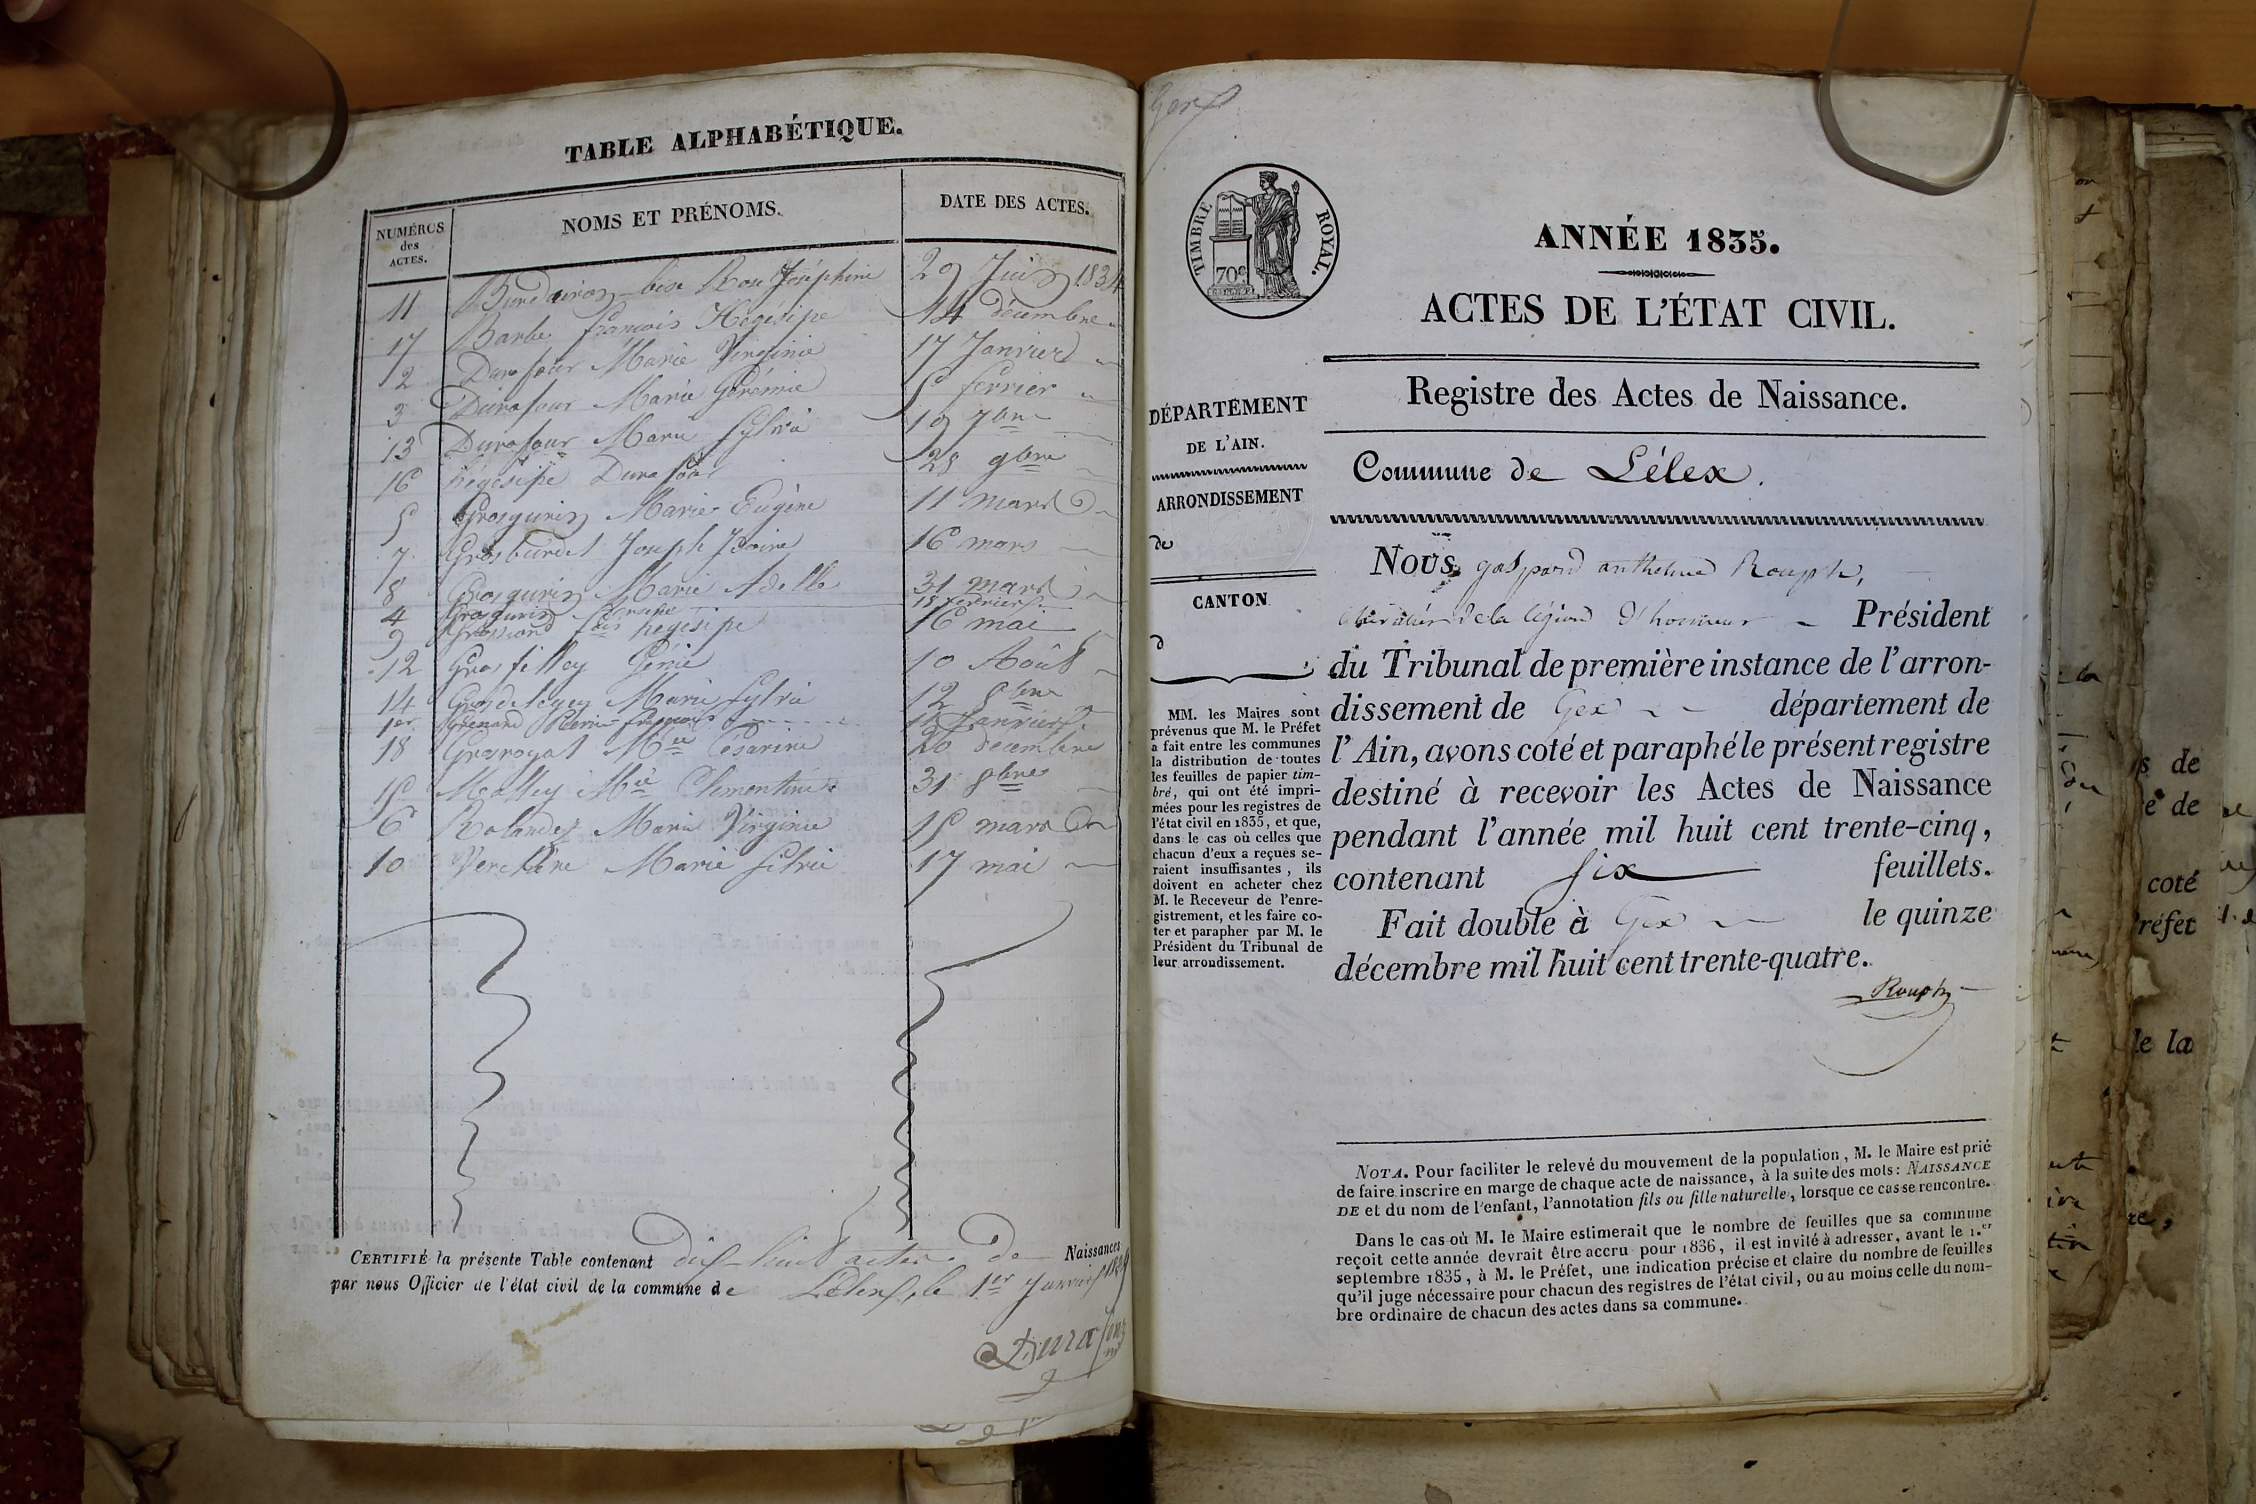 TABLE ALPHABÉTIQUE.
NUMÉROS des ACTES. NOMS ET PRÉNOMS. DATE DES ACTES.
11 Rose Joséphine 29 Juin 1834
17 Barbe françois Hégésipe 14 décembre
2 Durafour Marie Virginie 17 Janvier
3 Durafour Marie 5 fevrier
13 Durafour Marie Sylvie 19 7bre
16 hégésipe Durafour 28 9bre
5 Grosgurin Marie Eugène 11 mars
7 Grosburdet Joseph 16 mars
8 Grosgurin Marie Adelle 31 mars
4 Grosgurin 15 fevrier
9 hégésipe 16 mai
12 Grosfilley Génie 10 Août
14 Marie Sylvie 12 8bre
1er françois 12 Janvier
18 Grosroyat Mie Césarine 20 decembre
15 Malley Mie Clémentine 31 8bre
6 Rolandez Marie Virginie 15 mars
10 Verchère Marie Silvie 17 mai
CERTIFIÉ la présente Table contenant dix-huit actes de Naissances
par nous Officier de l'état civil de la commune de Lélex, le 1er Janvier
Durafour
Gex
TIMBRE ROYAL.
70c
ANNÉE 1835.
ACTES DE L'ÉTAT CIVIL.
Registre des Actes de Naissance.
Commune de Lélex.
DÉPARTEMENT
DE L'AIN.
ARRONDISSEMENT
de
CANTON
d
MM. les Maires sont
prévenus que M. le Préfet
a fait entre les communes
la distribution de toutes
les feuilles de papier tim-
bré, qui ont été impri-
mées pour les registres de
l'état civil en 1835, et que,
dans le cas où celles que
chacun d'eux a reçues se-
raient insuffisantes, ils
doivent en acheter chez
M. le Receveur de l'enre-
gistrement, et les faire co-
ter et parapher par M. le
Président du Tribunal de
leur arrondissement.
Nous, gaspard anthelme Rouph,
chevalier de la légion d'honneur Président
du Tribunal de première instance de l'arron-
dissement de Gex département de
l'Ain, avons coté et paraphé le présent registre
destiné à recevoir les Actes de Naissance
pendant l'année mil huit cent trente-cinq,
contenant six feuillets.
Fait double à Gex le quinze
décembre mil huit cent trente-quatre.
Rouph
NOTA. Pour faciliter le relevé du mouvement de la population, M. le Maire est prié
de faire inscrire en marge de chaque acte de naissance, à la suite des mots: NAISSANCE
DE et du nom de l'enfant, l'annotation fils ou fille naturelle, lorsque ce cas se rencontre.
Dans le cas où M. le Maire estimerait que le nombre de feuilles que sa commune
reçoit cette année devrait être accru pour 1836, il est invité à adresser, avant le 1.er
septembre 1835, à M. le Préfet, une indication précise et claire du nombre de feuilles
qu'il juge nécessaire pour chacun des registres de l'état civil, ou au moins celle du nom-
bre ordinaire de chacun des actes dans sa commune.
s de
e de
coté
réfet
le la